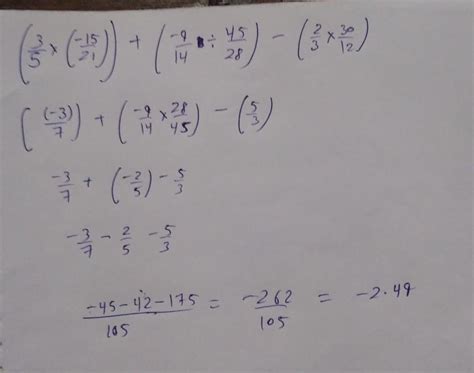 (3/5 × (-15/21)) + (-9/14 ÷ 45/28) - (2/3 × 30/12)
((-3)/7) + (-9/14 × 28/45) - (5/3)
-3/7 + (-2/5) - 5/3
-3/7 - 2/5 - 5/3
-45-42-175/105 = -262/105 = -2.49